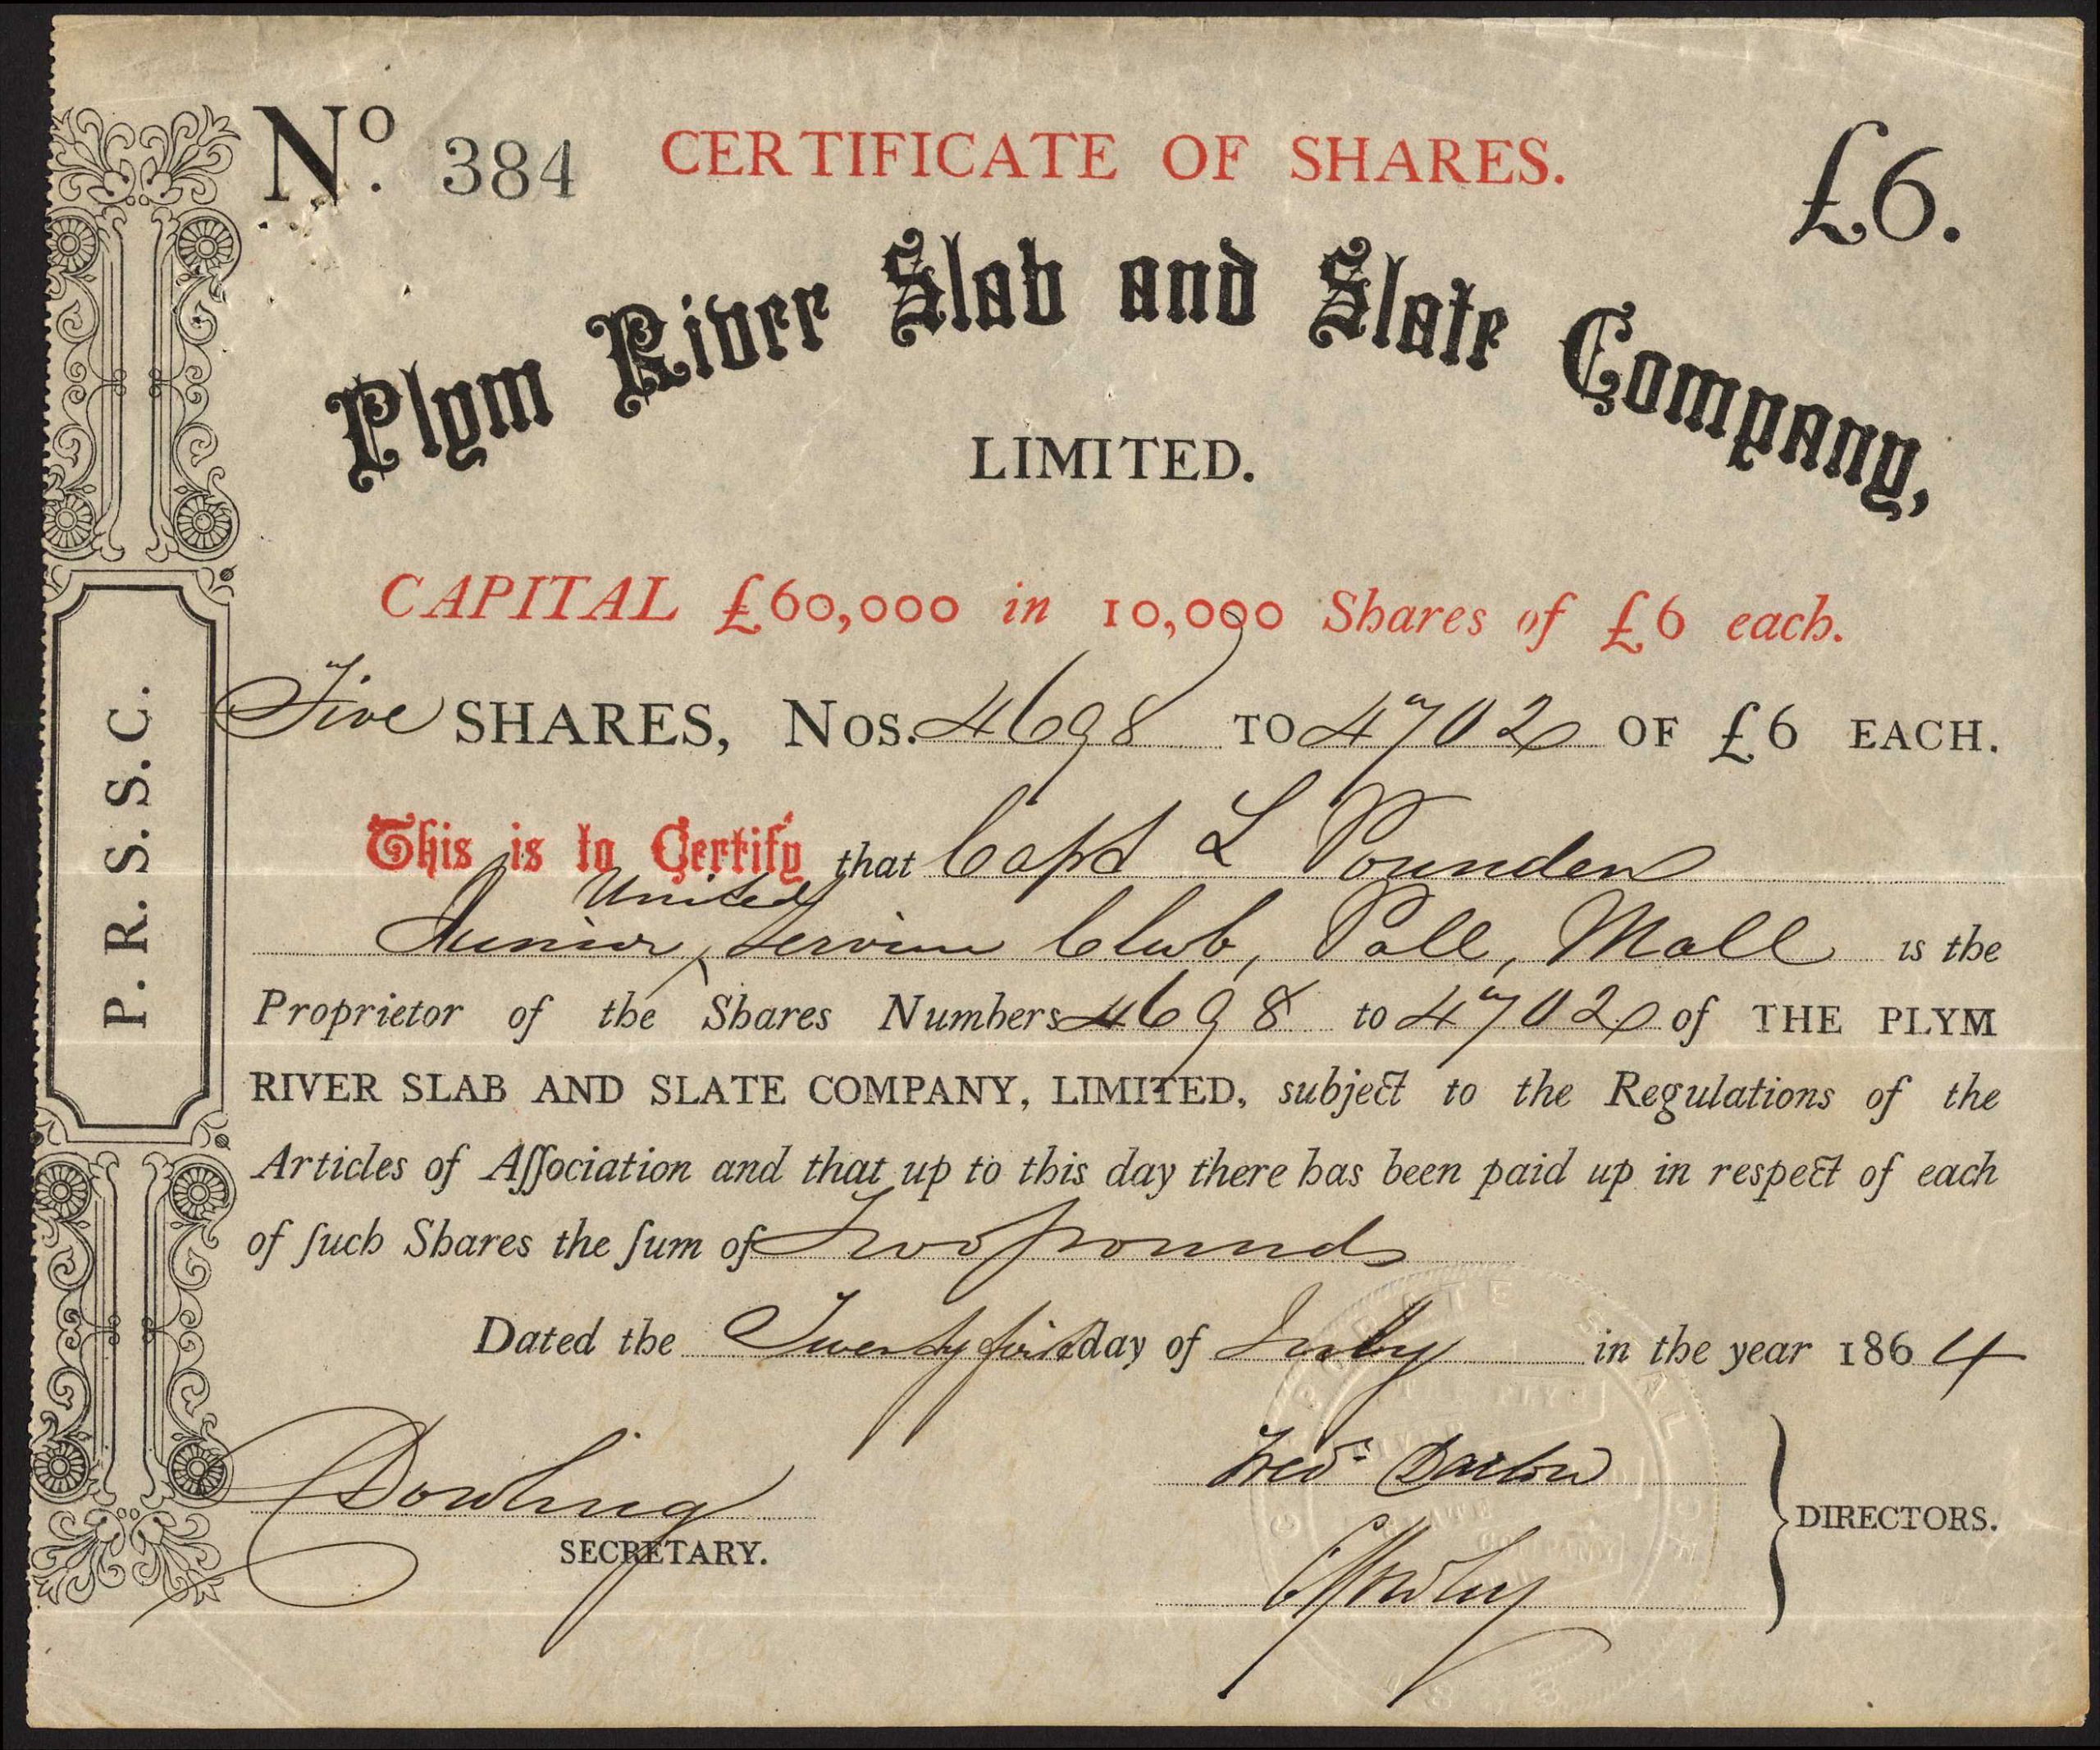 No. 384 CERTIFICATE OF SHARES. £6.
Plym River Slab and Slate Company,
LIMITED.
CAPITAL £60,000 in 10,000 Shares of £6 each.
Five SHARES, Nos. 4698 TO 4702 OF £6 EACH.
This is to Certify that Capt L Pounden
Junior United Service Club, Pall, Mall is the
Proprietor of the Shares Numbers 4698 to 4702 of THE PLYM
RIVER SLAB AND SLATE COMPANY, LIMITED, subject to the Regulations of the
Articles of Aſſociation and that up to this day there has been paid up in respect of each
of ſuch Shares the ſum of Two pounds
Dated the Twenty first day of July in the year 1864
Dowling
SECRETARY.
Fredk. Barlow
DIRECTORS.
P. R. S. S. C.